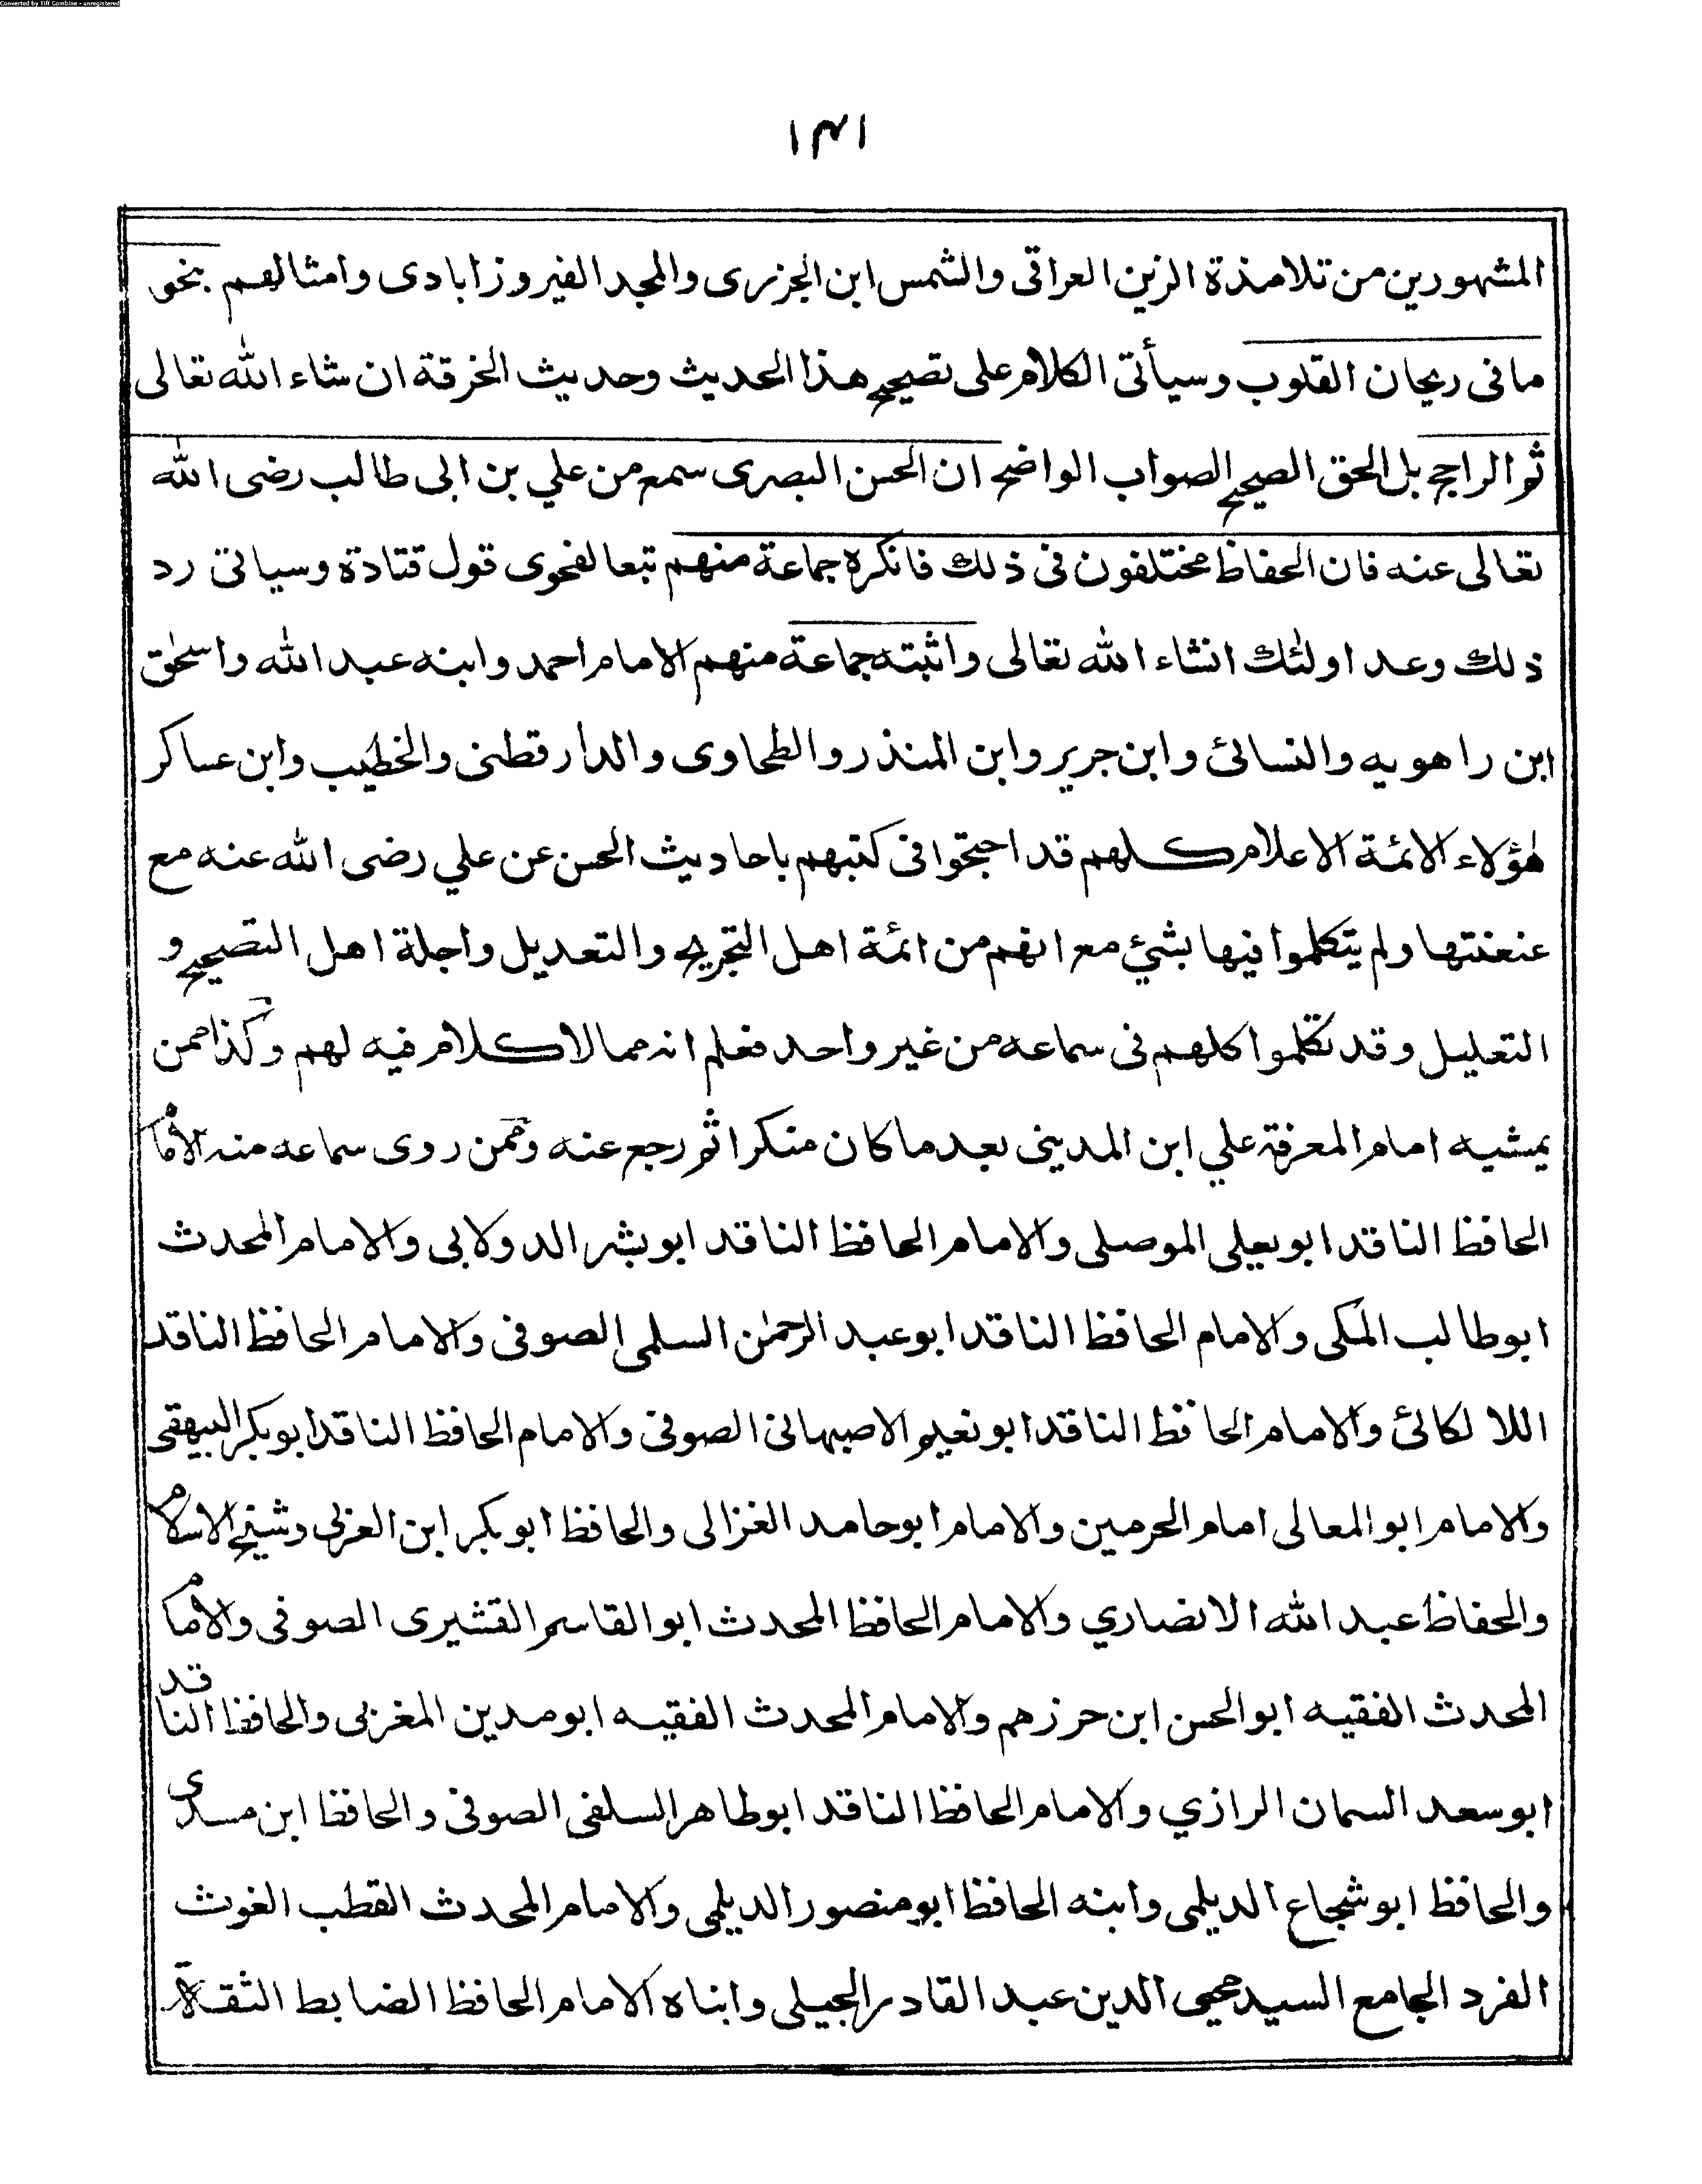 Converted by Tiff Combine - unregistered
١٣١
المشهورين من تلامذة الزين العراقى والشمس ابن الجزرى والمجد الفيروزابادى وامثالهم بنحو
مافى ريحان القلوب وسيأتى الكلام على تصحيح هذا الحديث وحديث الخرقة ان شاء الله تعالى
ثم الراجح بل الحق الصحيح الصواب الواضح ان الحسن البصرى سمع من علي بن ابى طالب رضى الله
تعالى عنه فان الحفاظ مختلفون فى ذلك فانكره جماعة منهم تبعا لفحوى قول قتادة وسياتى رد
ذلك وعد اولئك انشاء الله تعالى واثبته جماعة منهم الامام احمد وابنه عبد الله واسحٰق
ابن راهويه والنسائئ وابن جرير وابن المنذر والطحاوى والدارقطنى والخطيب وابن عساكر
هٰؤلاء الائمة الاعلام كلهم قد احتجوا فى كتبهم باحاديث الحسن عن علي رضى الله عنه مع
عنعنتها ولم يتكلموا فيها بشئ مع انهم من ائمة اهل التجريح والتعديل واجلة اهل التصحيح و
التعليل وقد تكلموا كلهم فى سماعه من غير واحد فعلم انه مما لا كلام فيه لهم وكذا ممن
يمشيه امام المعرفة علي ابن المدينى بعد ما كان منكرا ثم رجع عنه وممن روى سماعه منه الامام
الحافظ الناقد ابو يعلى الموصلى والامام الحافظ الناقد ابو بشر الدولابى والامام المحدث
ابوطالب المكى والامام الحافظ الناقد ابو عبد الرحمٰن السلمى الصوفى والامام الحافظ الناقد
اللالكائئ والامام الحافظ الناقد ابو نعيم الاصبهانى الصوفى والامام الحافظ الناقد ابو بكر البيهقى
والامام ابو المعالى امام الحرمين والامام ابو حامد الغزالى والحافظ ابو بكر ابن العربى وشيخ الاسلام
والحفاظ عبد الله الانصاري والامام الحافظ المحدث ابو القاسم القشيرى الصوفى والامام
المحدث الفقيه ابو الحسن ابن حرزهم والامام المحدث الفقيه ابو مدين المغربى والحافظ الناقد
ابو سعد السمان الرازي والامام الحافظ الناقد ابو طاهر السلفى الصوفى والحافظ ابن مسدى
والحافظ ابو شجاع الديلمى وابنه الحافظ ابو منصور الديلمى والامام المحدث القطب الغوث
الفرد الجامع السيد محيى الدين عبد القادر الجيلى وابناه الامام الحافظ الضابط الثقة